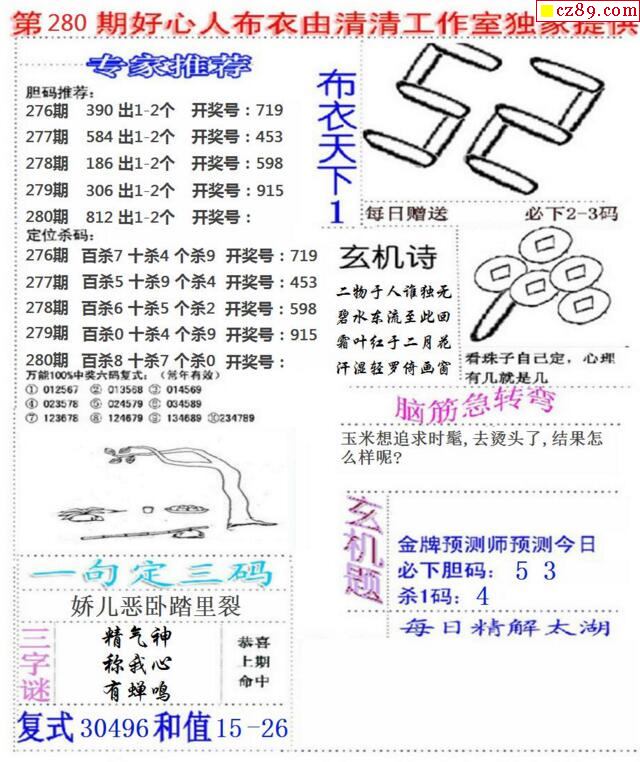 cz89.com
第280期好心人布衣由清清工作室独家提供
专家推荐
胆码推荐:
276期 390 出1-2个 开奖号:719
277期 584 出1-2个 开奖号:453
278期 186 出1-2个 开奖号:598
279期 306 出1-2个 开奖号:915
280期 812 出1-2个 开奖号:
定位杀码:
276期 百杀7 十杀4 个杀9 开奖号:719
277期 百杀9 十杀7 个杀4 开奖号:453
278期 百杀6 十杀5 个杀2 开奖号:598
279期 百杀0 十杀4 个杀9 开奖号:915
280期 百杀8 十杀7 个杀0 开奖号:
万能100%中奖六码复式:(常年有效)
① 012567 ② 013568 ③ 014569
④ 023578 ⑤ 024579 ⑥ 034589
⑦ 123678 ⑧ 124679 ⑨ 134689 ⑩234789
布衣天下1
52
每日赠送 必下2-3码
玄机诗
二物于人谁独无
碧水东流至此回
霜叶红于二月花
汗湿轻罗倚画窗
看珠子自己定,心理
有几就是几
脑筋急转弯
玉米想追求时髦,去烫头了,结果怎
么样呢?
一句定三码
娇儿恶卧踏里裂
三字谜
精气神
称我心
有蝉鸣
恭喜
上期
命中
复式30496和值15-26
玄机题
金牌预测师预测今日
必下胆码: 5 3
杀1码: 4
每日精解太湖